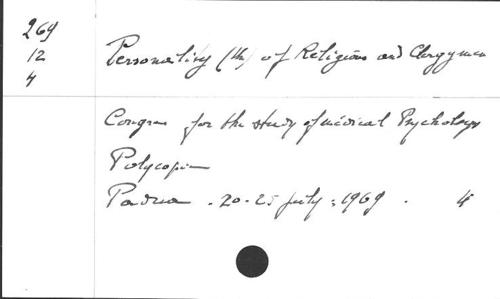 269
12
4
Personality (the) of Religious and Clergymen
Congress for the study of medical Psychology
Polycopie
Padua . 20-25 july . 1969 . 4